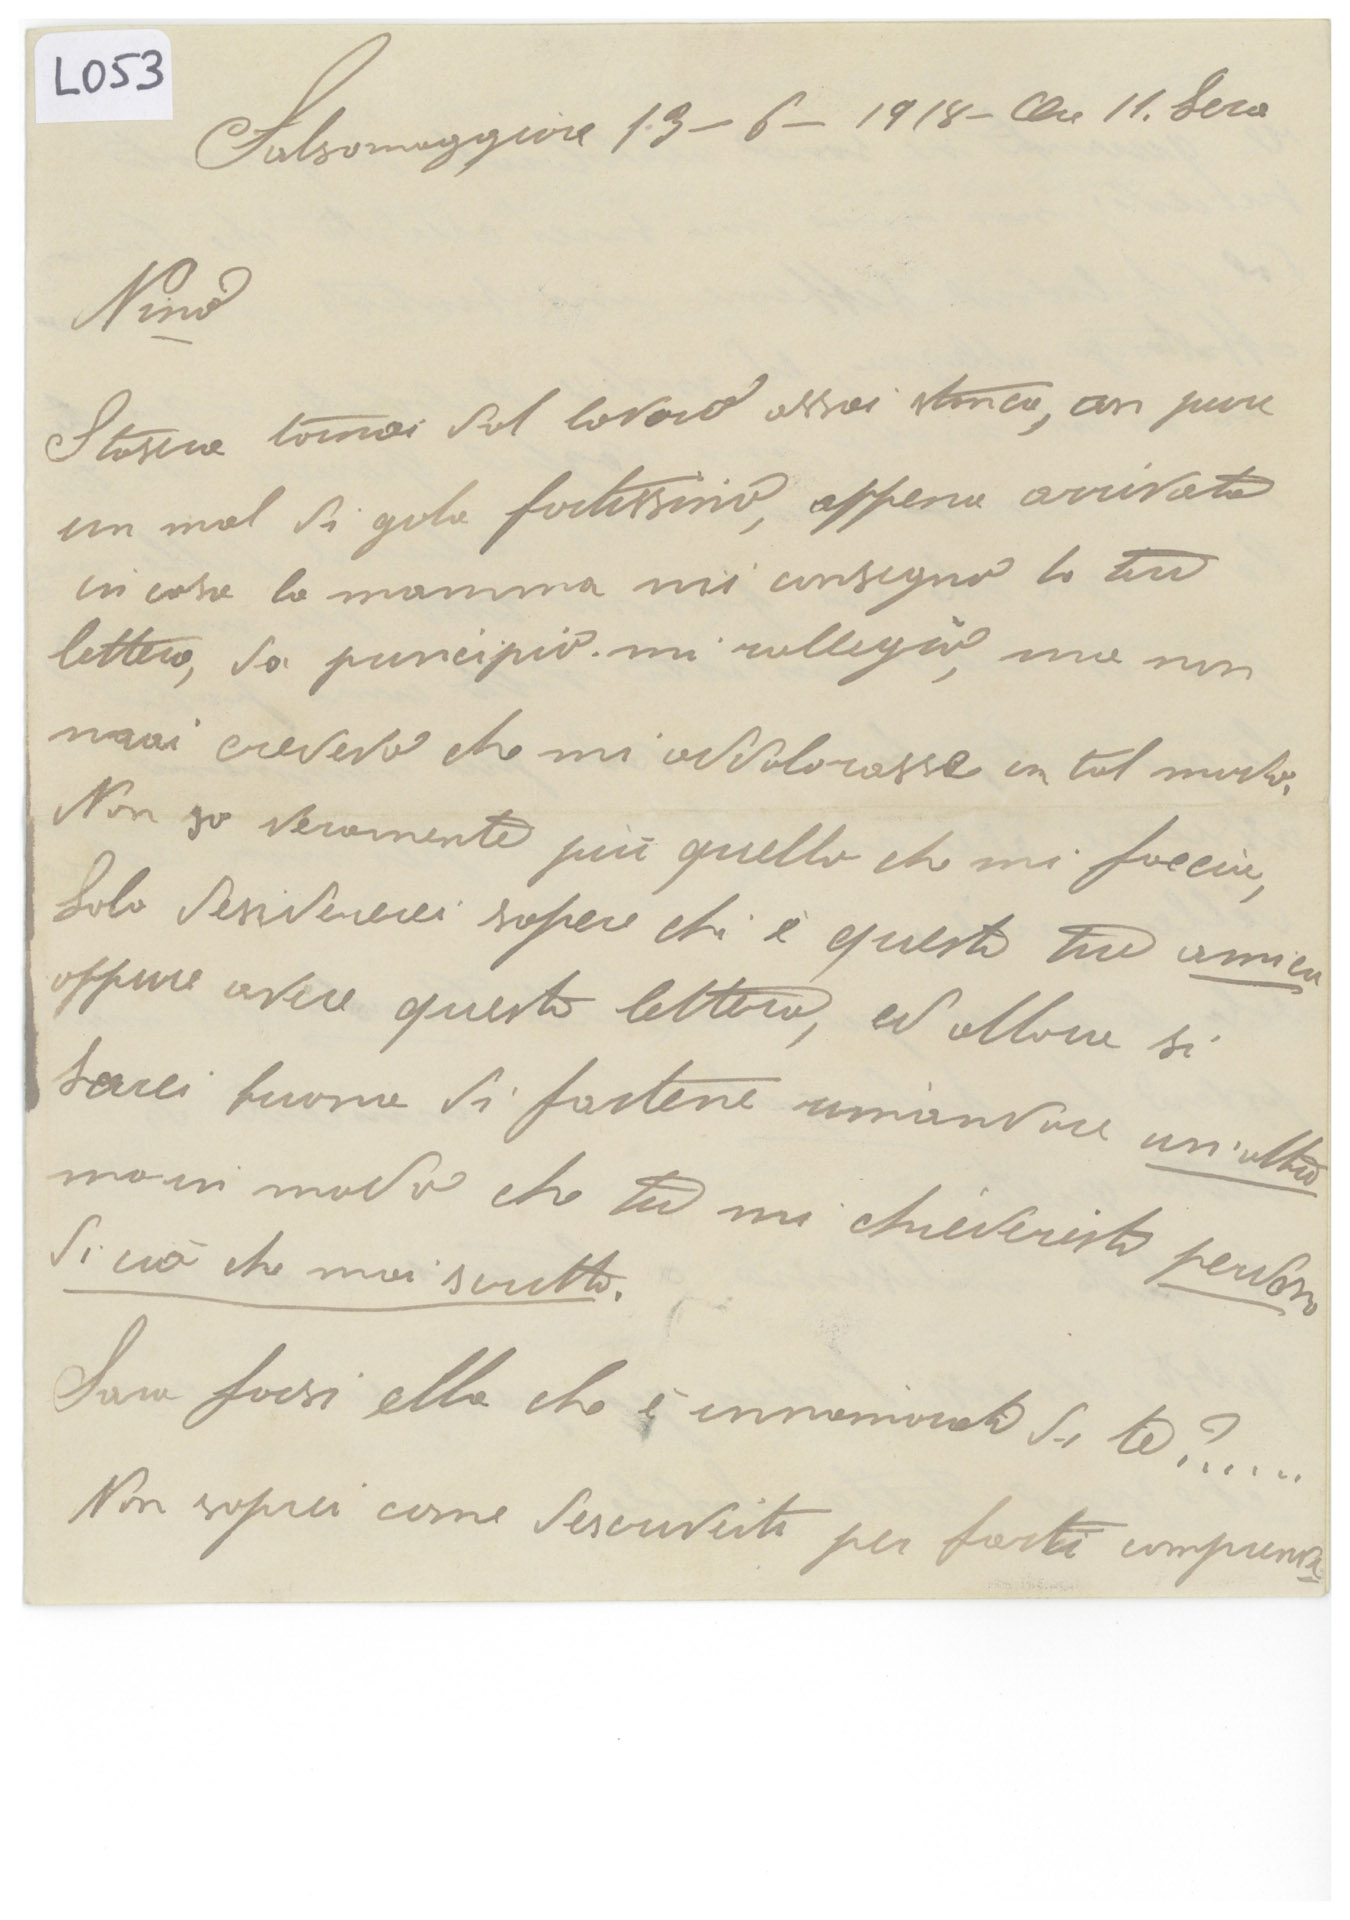 L053
Salsomaggiore 13-6-1918- Ore 11. Sera
Nino
Stasera tornai dal lavoro assai stanca, con pure
un mal di gola fortissimo, appena arrivata
in casa la mamma mi consegnò la tua
lettera, da principio mi rallegrò, ma non
mai credevo che mi addolorasse in tal modo.
Non so veramente più quello che mi faccia,
Solo desidererei sapere chi è questo tuo amico
oppure avere questa lettera, ed allora si
Sarei buona di fartene rimandare un'altra
ma in modo che tu mi chiederesti perdono
di ciò che mai scritto.
Sara forsi ella che è innamorata di te?......
Non saprei come descriverti per farti comprende